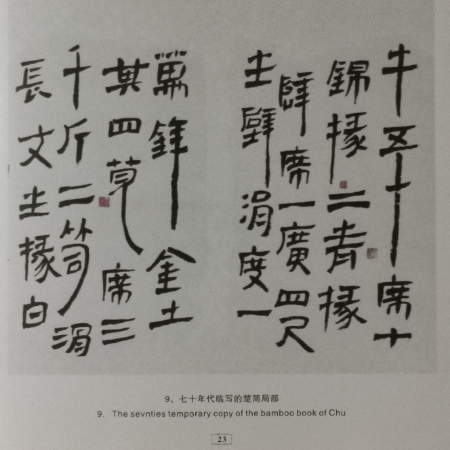 牛五十席十
錦掾二青掾
席一廣四尺
土壁涓度一
萬金土
其四草席三
千斤二笥涓
長文掾白
9、七十年代临写的楚简局部
9. The sevnties temporary copy of the bamboo book of Chu
23